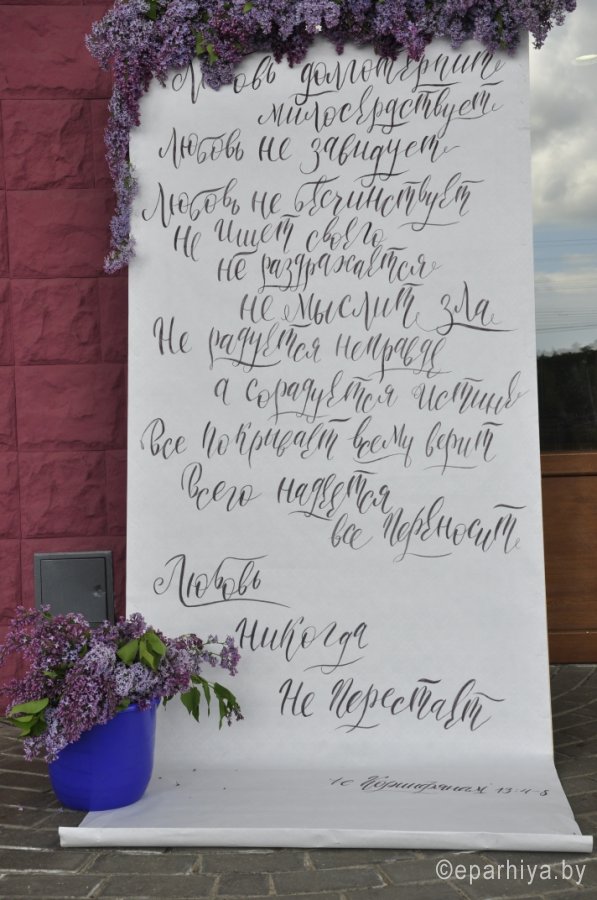 Любовь долготерпит
милосердствует
Любовь не завидует
Любовь не бесчинствует
Не ищет своего
не раздражается
не мыслит зла
Не радуется неправде
а сорадуется истине
Все покрывает всему верит
Всего надеется
все переносит
Любовь
Никогда
Не перестает
1е Коринфянам 13:4-8
©eparhiya.by